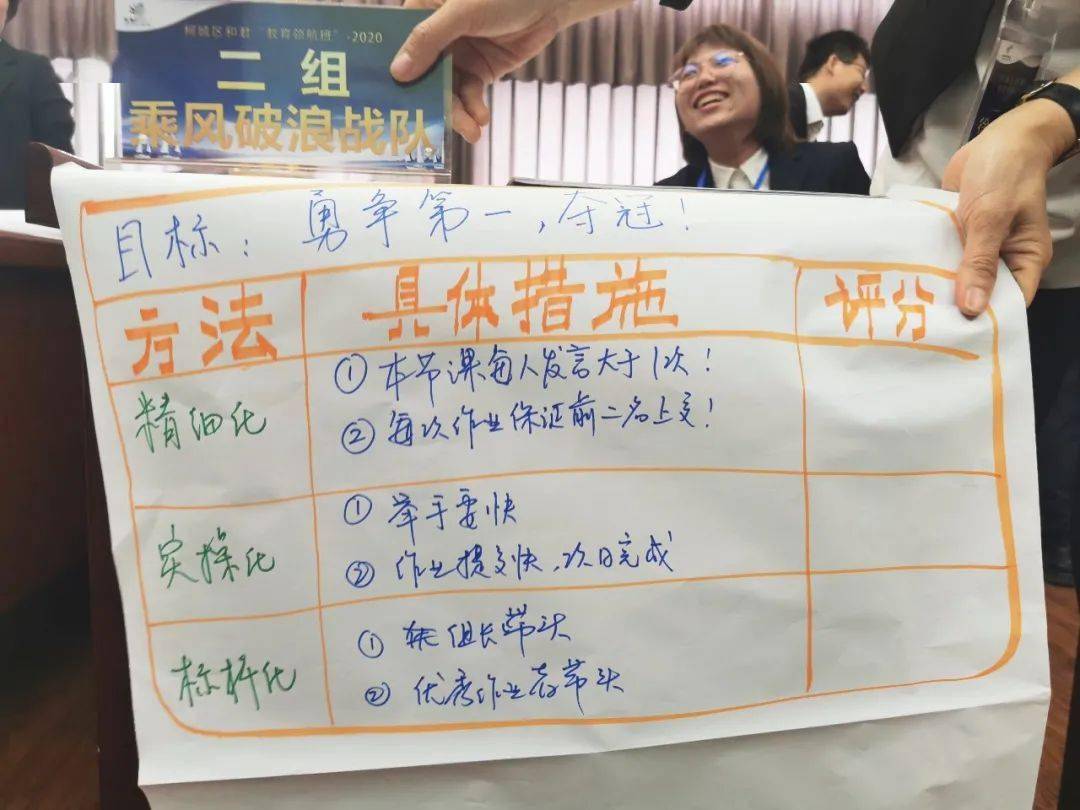 柯城区和君“教育领航班”·2020
二组
乘风破浪战队
目标：勇争第一，夺冠！
方法 具体措施 评分
精细化
①本节课每人发言大于1次！
②每次作业保证前二名上交！
实操化
①举手要快
②作业提交快、次日完成
标杆化
① 组长带头
②优秀作业者带头